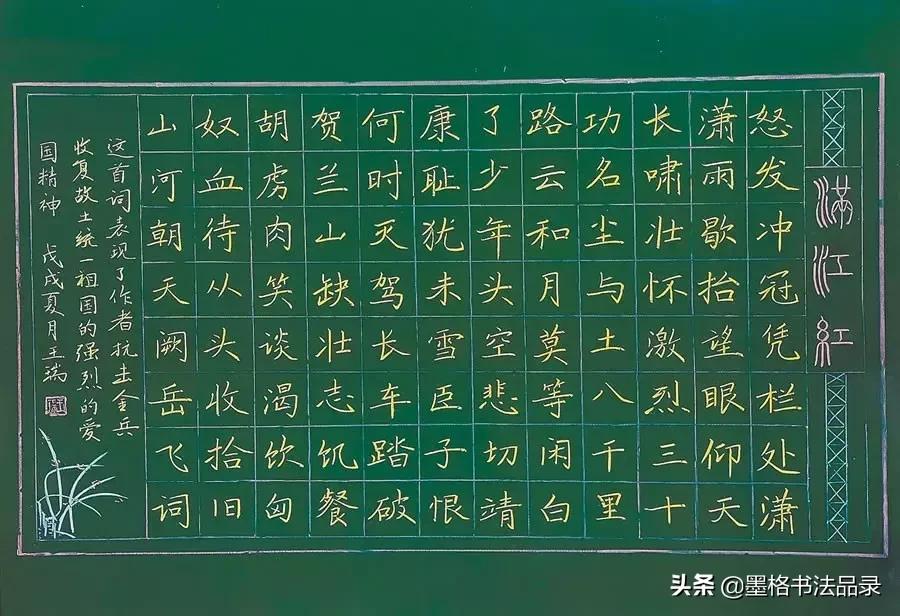 滿江紅
怒发冲冠凭栏处潇
潇雨歇抬望眼仰天
长啸壮怀激烈三十
功名尘与土八千里
路云和月莫等闲白
了少年头空悲切靖
康耻犹未雪臣子恨
何时灭驾长车踏破
贺兰山缺壮志饥餐
胡虏肉笑谈渴饮匈
奴血待从头收拾旧
山河朝天阙岳飞词
这首词表现了作者抗击金兵
收复故土统一祖国的强烈的爱
国精神 戊戌夏月王瑞
头条 @墨格书法品录